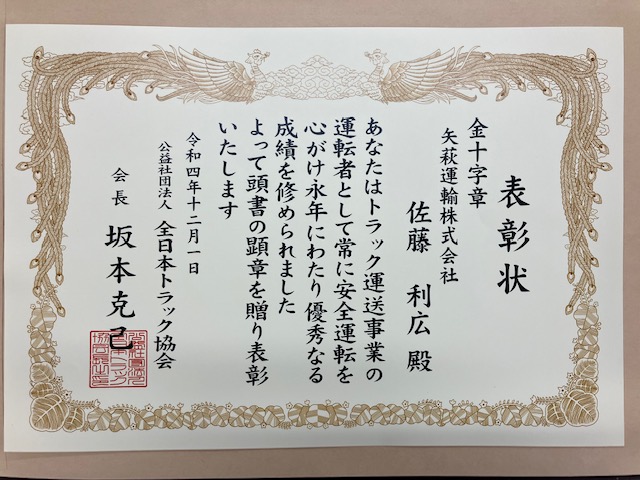 表彰状
金十字章
矢萩運輸株式会社
佐藤 利広 殿
あなたはトラック運送事業の
運転者として常に安全運転を
心がけ永年にわたり優秀なる
成績を修められました
よって頭書の顕章を贈り表彰
いたします
令和四年十二月一日
公益社団法人 全日本トラック協会
会長 坂本克己